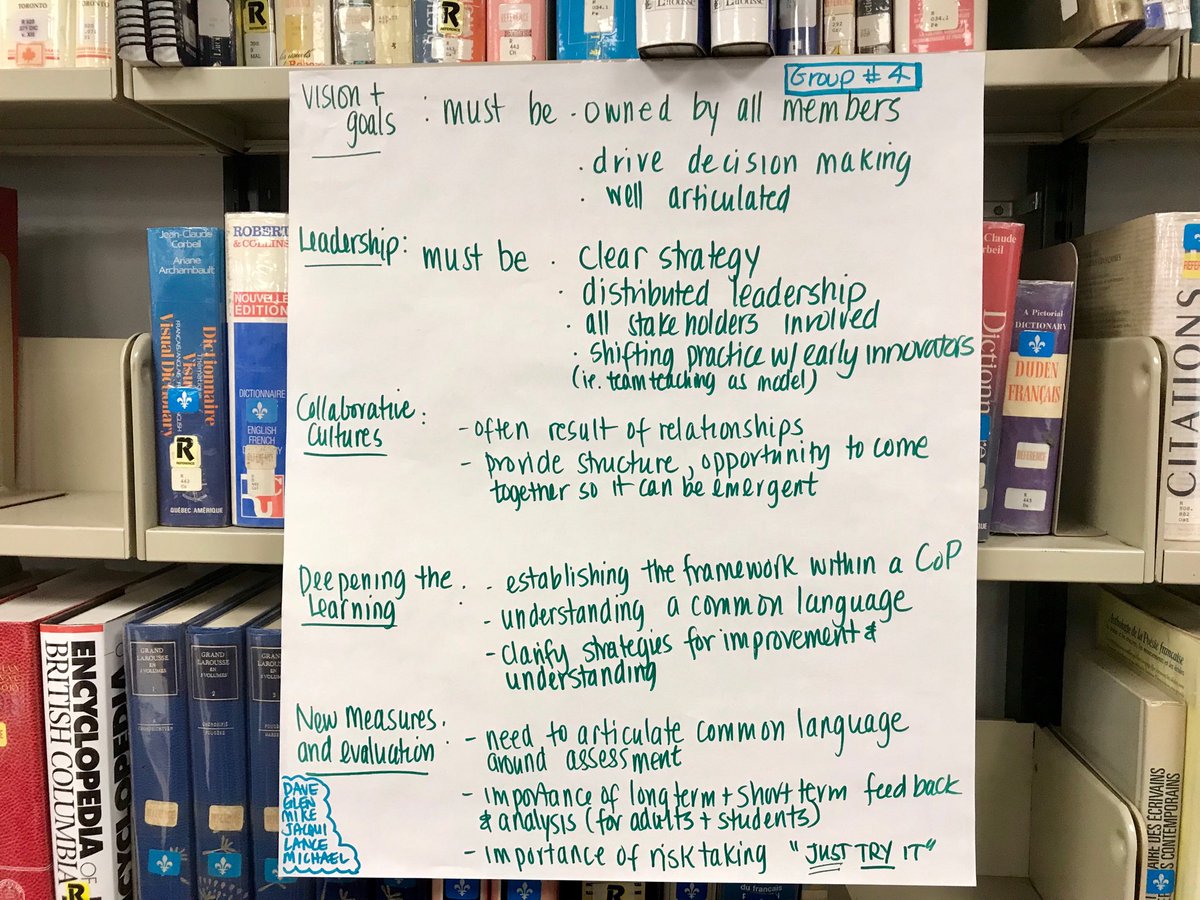 Group #4
Vision +
goals : must be · owned by all members
· drive decision making
· well articulated
Leadership: must be · clear strategy
· distributed leadership
· all stakeholders involved
· shifting practice w/ early innovators
(ie. team teaching as model)
Collaborative
Cultures :
- often result of relationships
- provide structure, opportunity to come
together so it can be emergent
Deepening the
Learning :
- establishing the framework within a CoP
- understanding a common language
- clarify strategies for improvement &
understanding
New Measures
and evaluation :
- need to articulate common language
around assessment
- importance of long term + short term feedback
& analysis (for adults + students)
- importance of risk taking "JUST TRY IT"
DAVE
GLEN
MIKE
JACQUI
LANCE
MICHAEL
TORONTO
TORONTO
R
R
REFERENCE
Larousse
Larousse
Jean-Claude
Corbeil
Ariane
Archambault
Dictionnaire
Thématique
Visual Dictionary
R
REFERENCE
QUÉBEC AMÉRIQUE
ROBERT
& COLLINS
NOUVELLE
ÉDITION
DICTIONNAIRE
ENGLISH
FRENCH
Claude
Corbeil
Dictionn
A Pictorial
DICTIONARY
DUDEN
FRANÇAIS
REFERENCE
CITATIONS
ENCYCLOPEDIA OF
BRITISH COLUMBIA
GRAND
LAROUSSE
EN
5 VOLUMES
1
GRAND
LAROUSSE
EN
5 VOLUMES
2
GRAND
LAROUSSE
EN
5 VOLUMES
3
Anthologie de la Poésie française
AIRE DES ÉCRIVAINS
CONTEMPORAINS
R
R
du français